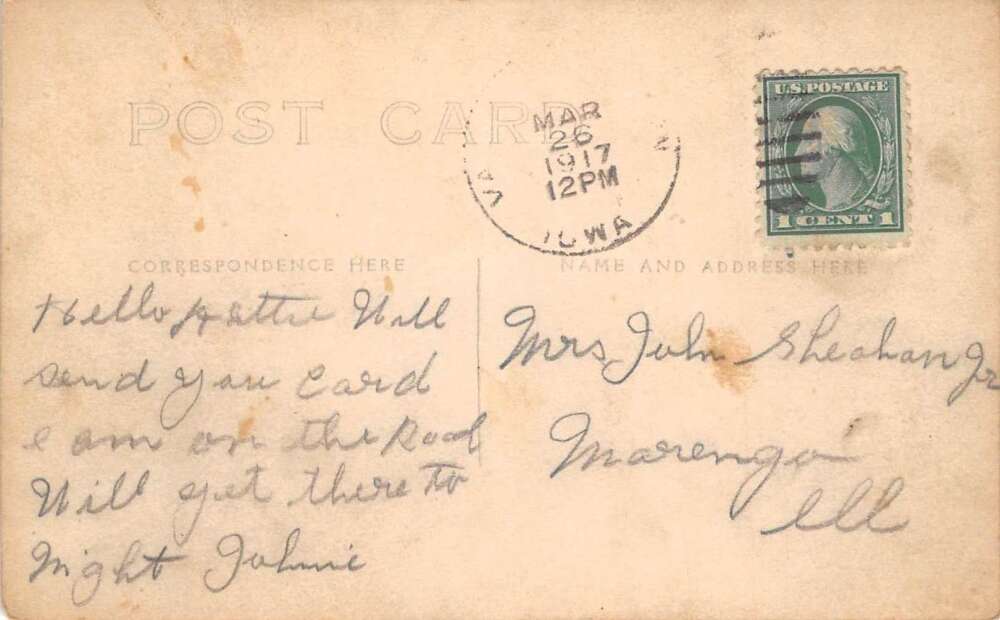 POST CARD
MAR
26
1917
12PM
IOWA
U.S. POSTAGE
1 CENT 1
CORRESPONDENCE HERE
NAME AND ADDRESS HERE
Hello Hattie Will
send you card
I am on the Road
Will get there to
night Johnie
Mrs John Sheahan Jr
Marengo
Ill